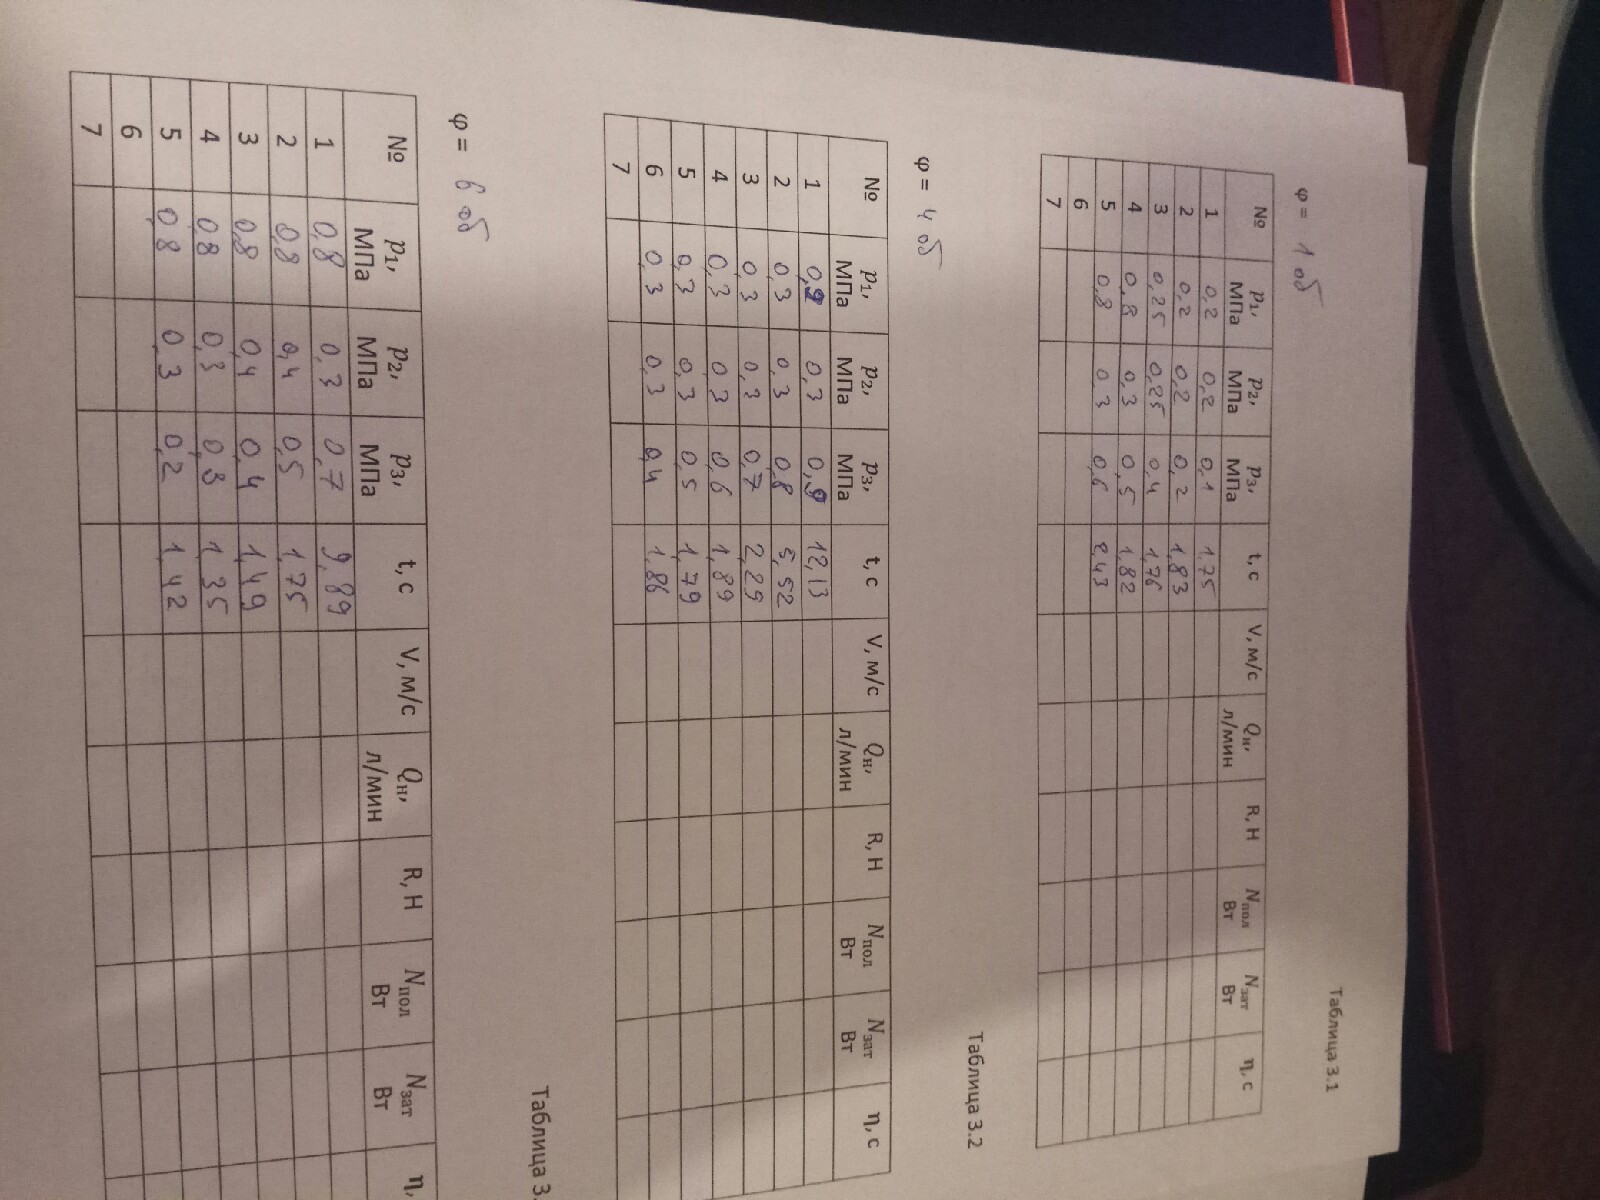 Таблица 3.1
φ = 1 об
№ p₁, МПа p₂, МПа p₃, МПа t, с V, м/с Qн, л/мин R, Н Nпол Вт Nзат Вт η, с
1 0,2 0,2 0,1 1,75
2 0,2 0,2 0,2 1,83
3 0,25 0,25 0,4 1,76
4 0,8 0,3 0,5 1,82
5 0,8 0,3 0,6 2,43
6
7
Таблица 3.2
φ = 4 об
№ p₁, МПа p₂, МПа p₃, МПа t, с V, м/с Qн, л/мин R, Н Nпол Вт Nзат Вт η, с
1 0,9 0,3 0,9 12,13
2 0,3 0,3 0,8 5,52
3 0,3 0,3 0,7 2,29
4 0,3 0,3 0,6 1,89
5 0,3 0,3 0,5 1,79
6 0,3 0,3 0,4 1,86
7
Таблица 3.
φ = 6 об
№ p₁, МПа p₂, МПа p₃, МПа t, с V, м/с Qн, л/мин R, Н Nпол Вт Nзат Вт η,
1 0,8 0,3 0,7 9,89
2 0,8 0,4 0,5 1,75
3 0,8 0,4 0,4 1,49
4 0,8 0,3 0,3 1,35
5 0,8 0,3 0,2 1,42
6
7